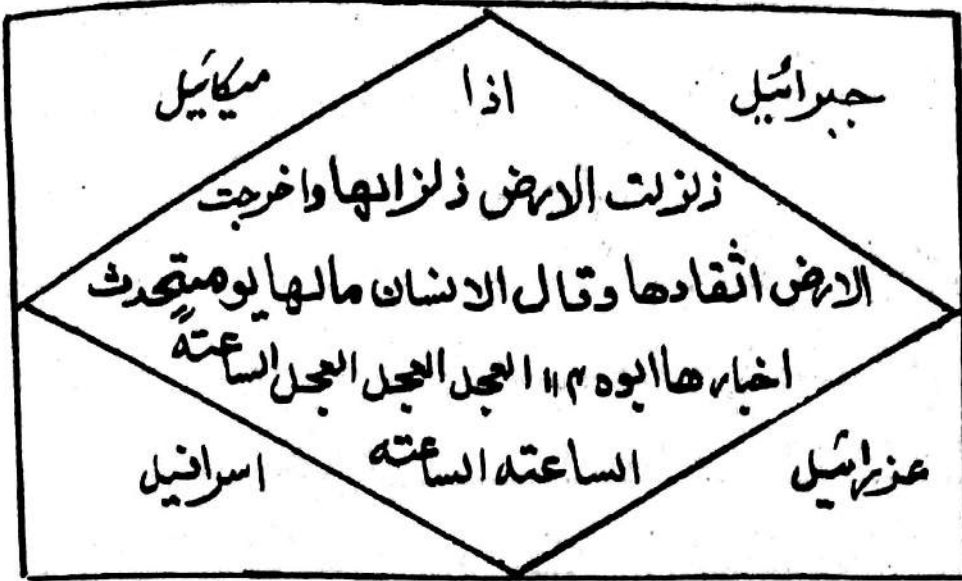 جبرائيل
ميكائيل
اذا
زلزلت الارض زلزالها واخرجت
الارض اثقادها وقال الانسان مالها يومئتحدث
اخبارها ااا العجل العجل العجل الساعتة
الساعته الساعته
عزرائيل
اسرافيل